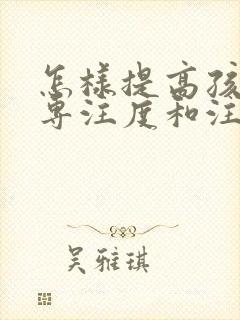 怎样提高孩
专注度和注
吴雅琪